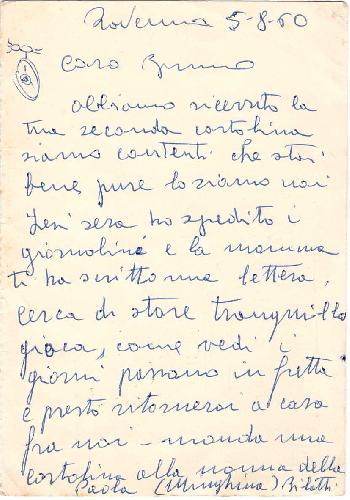 Ravenna 5-8-60
Caro Bruno
abbiamo ricevuto la
tua seconda cartolina
siamo contenti che stai
bene pure lo siamo noi
Jeri sera ho spedito i
giornalini e la mamma
ti ha scritto una lettera,
cerca di stare tranquillo
gioca, come vedi i
giorni passano in fretta
e presto ritornerai a casa
fra noi - manda una
cartolina alla nonna della
Paola (Minghina)